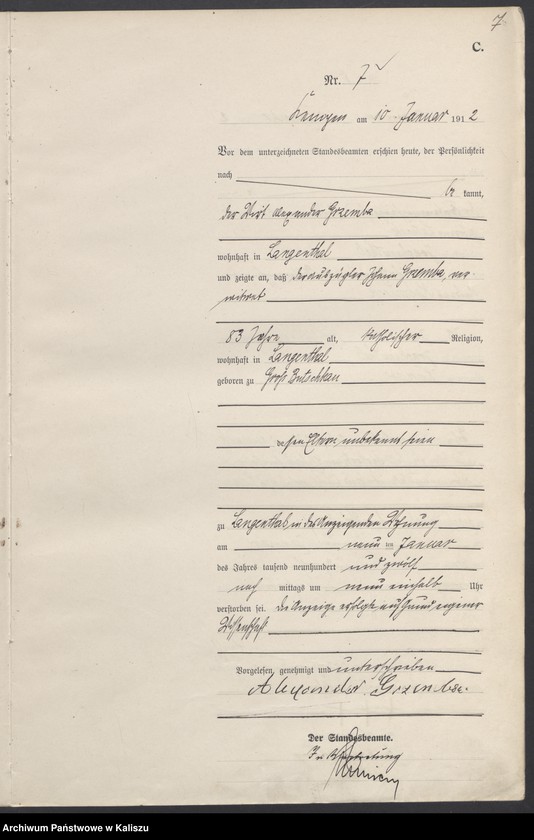 7
C.
Nr. 7
Kempen am 10 Januar 1912
Vor dem unterzeichneten Standesbeamten erschien heute, der Persönlichkeit
nach
be kannt,
der Wirt Alexander Grzemba
wohnhaft in Langenthal
und zeigte an, daß der Auszügler Johann Grzemba, ver-
witwet
83 Jahre alt, katholischer Religion,
wohnhaft in Langenthal
geboren zu Groß Butschkau
dessen Eltern unbekannt seien
zu Langenthal, in des Anzeigenden Wohnung
am neun ten Januar
des Jahres tausend neunhundert und zwölf
nach mittags um neun einhalb Uhr
verstorben sei. Die Anzeige erfolgte auf Grund eigener
Wissenschaft.
Vorgelesen, genehmigt und unterschrieben
Alexander Grzemba.
Der Standesbeamte.
In Vertretung
Archiwum Państwowe w Kaliszu